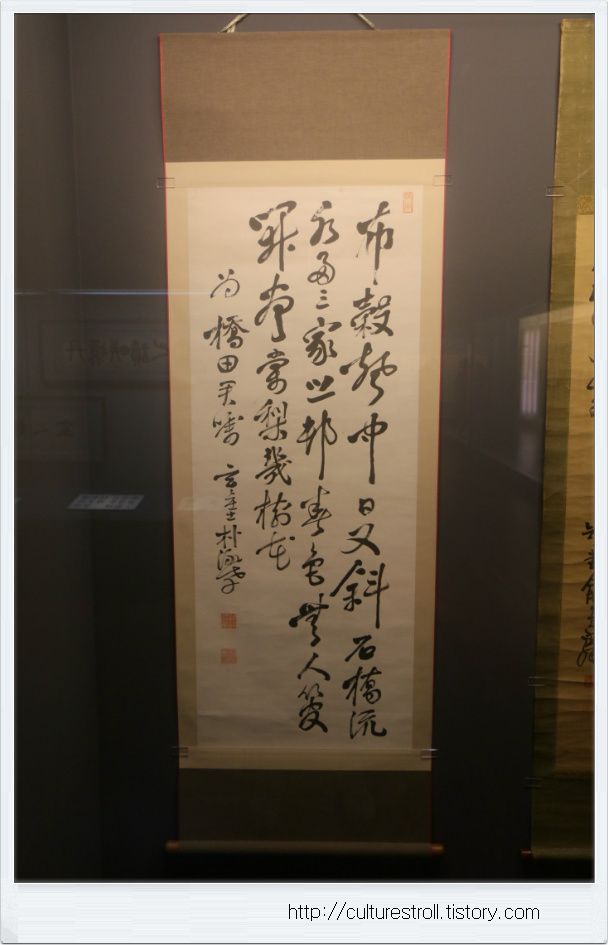 布穀聲中日又斜石橋流
水兩三家山邨春色無人管
開落棠梨幾樹花
為橋田君囑 朴泳孝
http://culturestroll.tistory.com